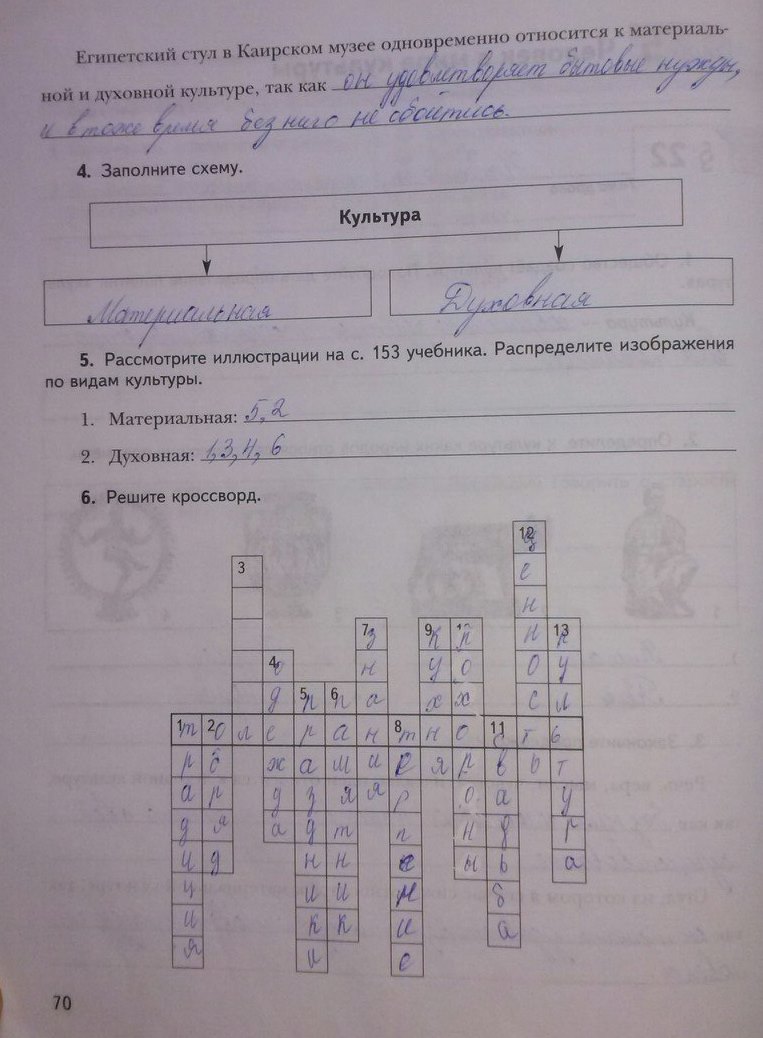 Египетский стул в Каирском музее одновременно относится к материаль-
ной и духовной культуре, так как он удовлетворяет бытовые нужды,
и в тоже время без него не обойтись.
4. Заполните схему.
Культура
Материальная
Духовная
5. Рассмотрите иллюстрации на с. 153 учебника. Распределите изображения
по видам культуры.
1. Материальная: 5, 2
2. Духовная: 1, 3, 4, 6
6. Решите кроссворд.
12 ценность
3
7 знания
9 кухня
10 похороны
13 культура
4 одежда
5 праздники
6 памятник
толерантность
1 традиция
2 обряд
8 терпение
11 свадьба
70